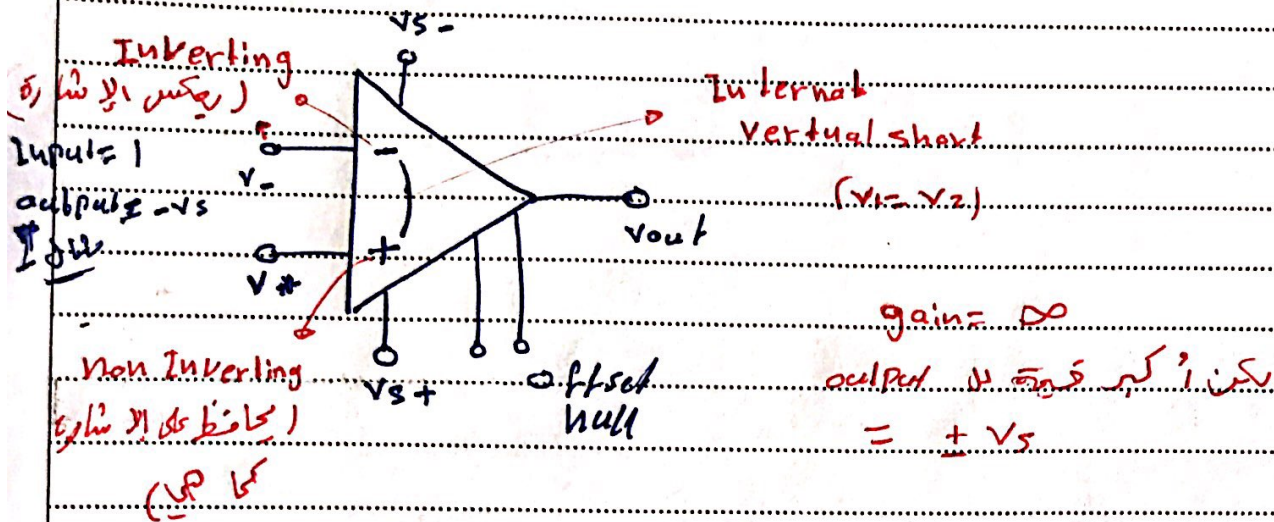 Vs -
Inverting
(يعكس الإشارة)
Input = 1
output = -Vs
V-
-
Internal
vertual short
(V1 = V2)
Vout
+
V+
Non Inverting
(يحافظ على الإشارة
كما هي)
Vs +
offset
null
gain = ∞
لكن أكبر قيمة لل output
= ± Vs